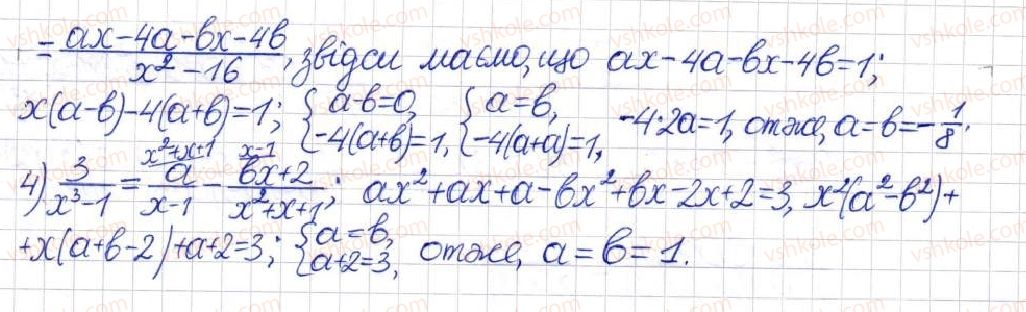 = (ax-4a-bx-4b)/(x²-16), звідси маємо, що ax-4a-bx-4b=1;
x(a-b)-4(a+b)=1; { a-b=0, -4(a+b)=1, { a=b, -4(a+a)=1, -4·2a=1, отже, a=b=-1/8.
4) 3/(x³-1) = a/(x-1) (x²+x+1) - (bx+2)/(x²+x+1) (x-1); ax²+ax+a-bx²+bx-2x+2=3, x²(a²-b²)+
+x(a+b-2)+a+2=3; { a=b, a+2=3, отже, a=b=1.